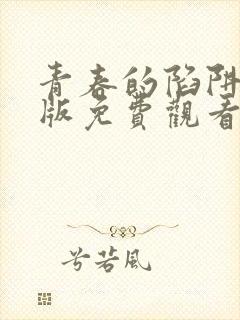 青春的陷阱
版免費觀看
兮若風